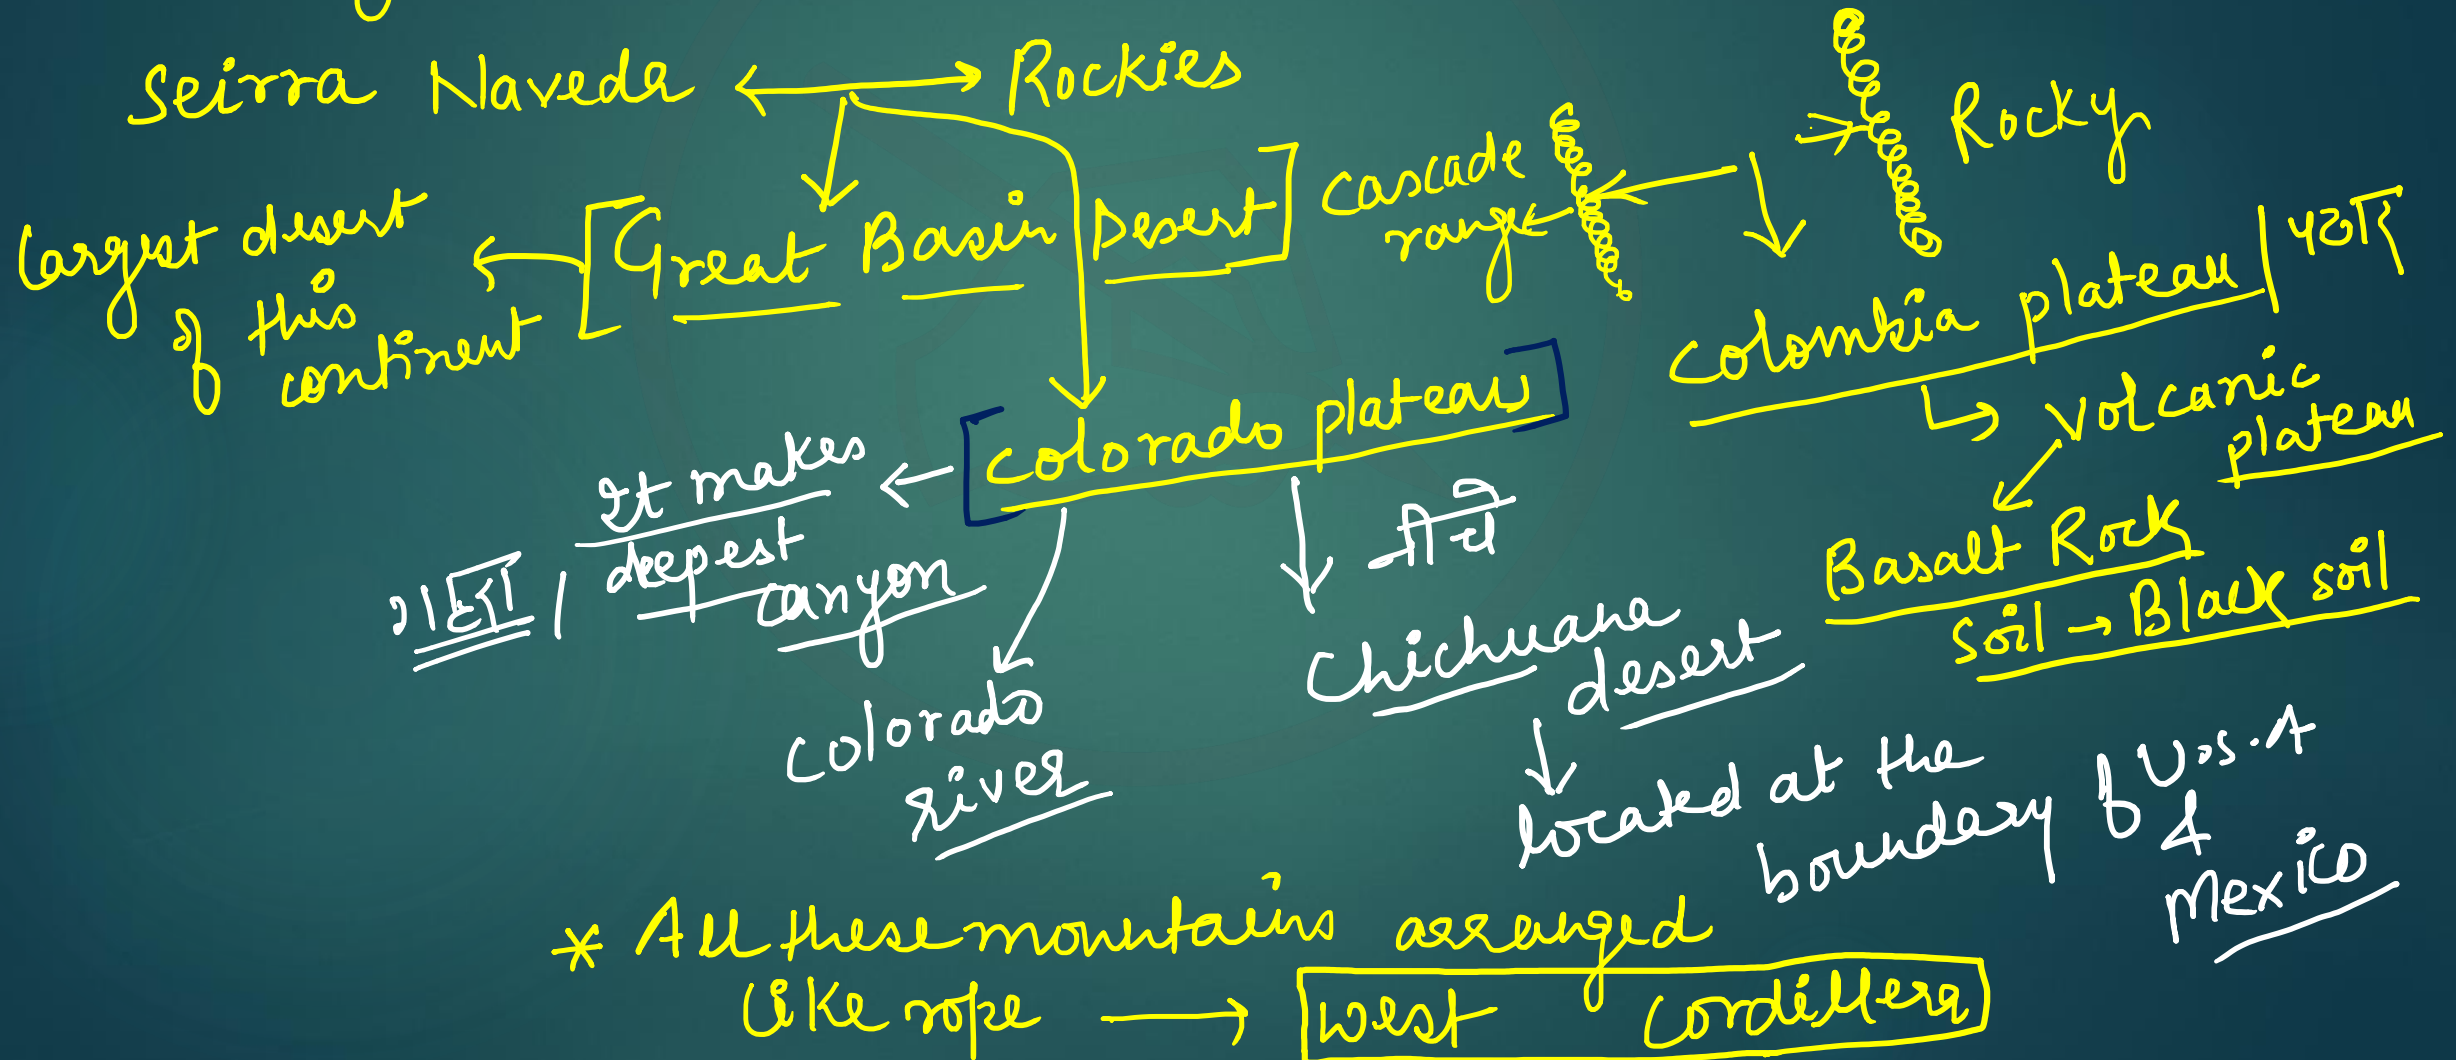 Seirra Naveda Rockies
Largest desert
of this
continent
Great Basin Desert
Cascade
range
Rocky
Colombia plateau | पठार
volcanic
plateau
Basalt Rock
Soil → Black soil
Colorado plateau
It makes
deepest
canyon
गहरा /
Colorado
river
नीचे
Chichuana
desert
located at the
boundary of U.S.A
&
Mexico
* All these mountains arranged
like rope → West Cordillera